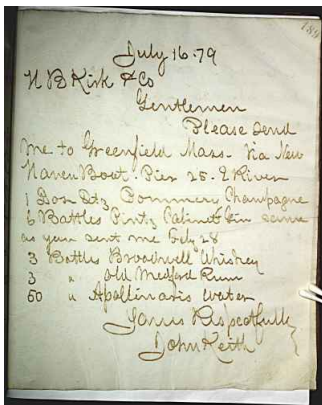 July 16-79
H B Kirk & Co
Gentlemen
Please send
me to Greenfield Mass. Via New
Haven Boat Pier 25. E River
1 Dox Qts Pommery Champagne
6 Bottles Pints Cabinet Gin same
as you sent me July 28
3 Bottles Broadwell Whiskey
3 " Old Medford Rum
50 " Apollinaris Water
Yours Respectfully
John Keith